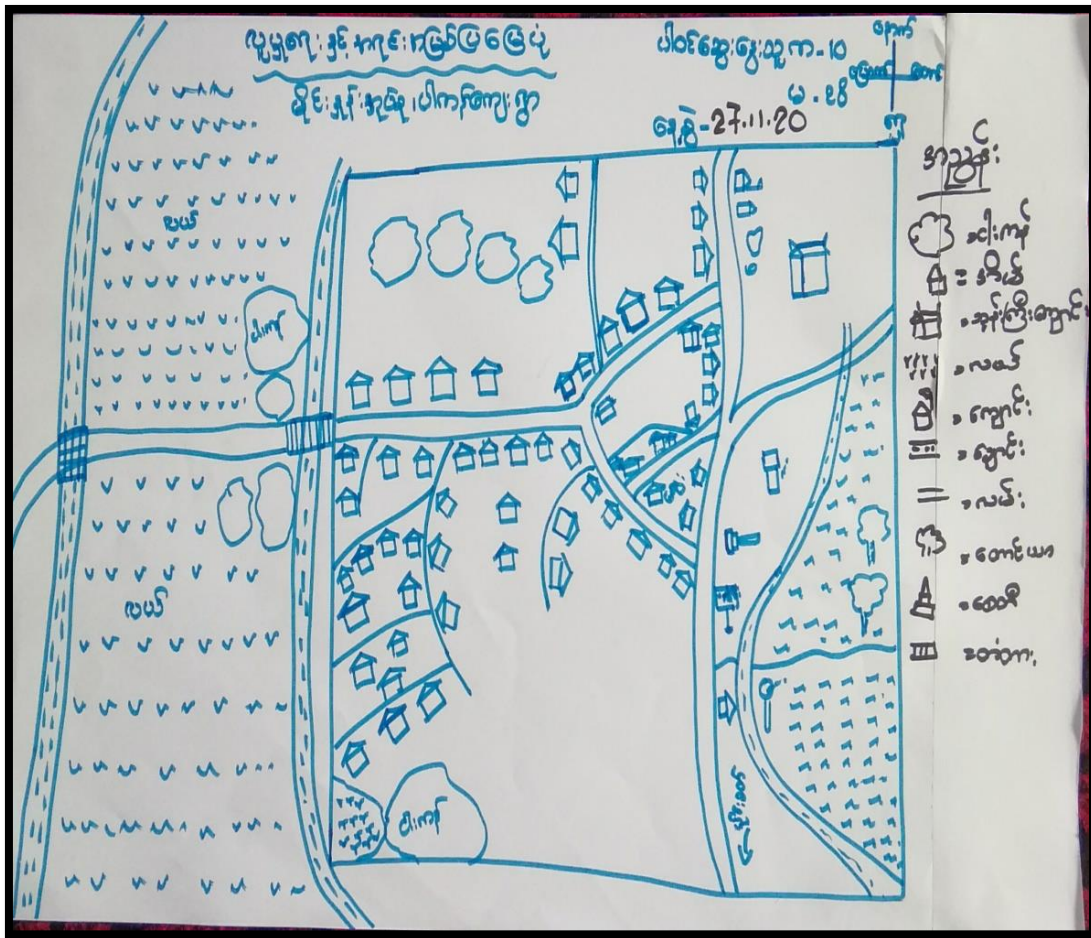 လူမှုရေးနှင့် အရင်းအမြစ်ပြမြေပုံ
မိုင်းနှုန်းအုပ်စု၊ ပါကန်ကျေးရွာ
ပါဝင်ဆွေးနွေးသူ ကျ - 10
မ - ၉၆
နေ့စွဲ - 27.11.20
နောက်
မြောက်
တောင်
အရှေ့
အညွှန်း
ငါးကန်
= အိမ်
ဘုန်းကြီးကျောင်း
= လယ်
= ကျောင်း
= ချောင်း
= လမ်း
= တောင်ယာ
= စေတီ
= တံတား
လယ်
ငါးကန်
လယ်
ငါးကန်